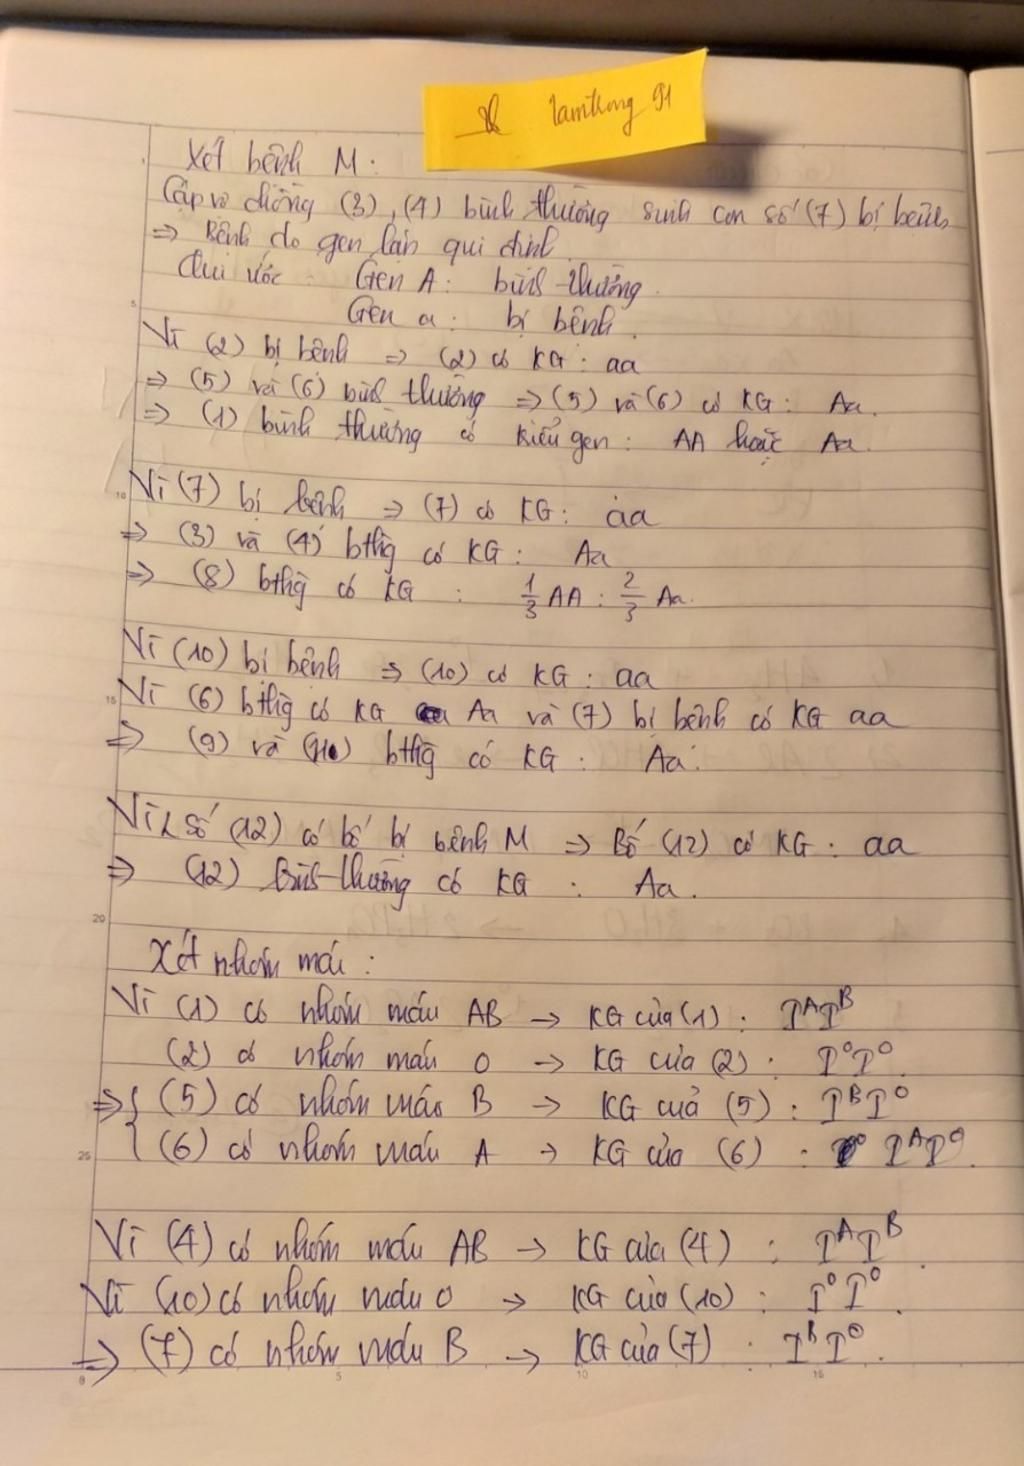 lamtrong 91
Xét bệnh M:
Cặp vợ chồng (3), (4) bình thường sinh con số (7) bị bệnh
=> Bệnh do gen lặn qui định
Qui ước: Gen A: bình thường.
Gen a: bị bệnh.
Vì (2) bị bệnh => (2) có KG: aa
=> (5) và (6) bình thường => (5) và (6) có KG: Aa.
=> (1) bình thường có kiểu gen: AA hoặc Aa.
Vì (7) bị bệnh => (7) có KG: aa
=> (3) và (4) bthg có KG: Aa
=> (8) bthg có KG : 1/3 AA : 2/3 Aa.
Vì (10) bị bệnh => (10) có KG: aa
Vì (6) bthg có KG Aa và (7) bị bệnh có KG aa
=> (9) và (11) bthg có KG: Aa.
Vì số (12) có bố bị bệnh M => Bố (12) có KG: aa
=> (12) bình thường có KG : Aa.
Xét nhóm máu:
Vì (1) có nhóm máu AB → KG của (1): IᴬIᴮ
(2) có nhóm máu O → KG của (2): IᴼIᴼ.
=> { (5) có nhóm máu B → KG của (5): IᴮIᴼ
{ (6) có nhóm máu A → KG của (6) : IᴬIᴼ.
Vì (4) có nhóm máu AB → KG của (4) : IᴬIᴮ.
Vì (10) có nhóm máu O → KG của (10): IᴼIᴼ.
=> (7) có nhóm máu B → KG của (7) : IᴮIᴼ.